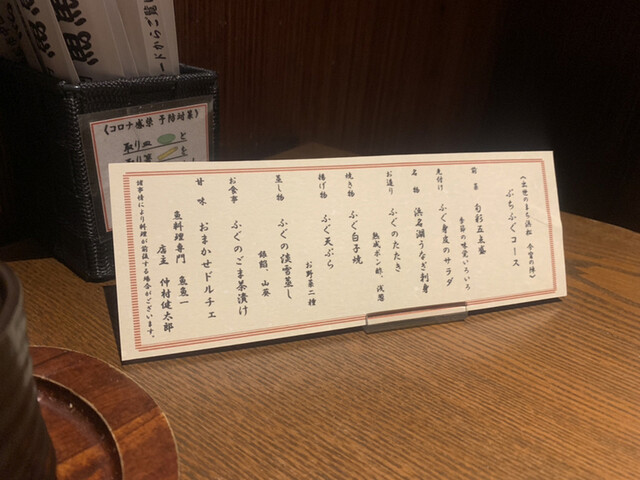 《出世のまち浜松 今宵の陣》
ぷちふぐコース
前菜 旬彩五点盛
季節の味覚いろいろ
先付け ふぐ身皮のサラダ
名物 浜名湖うなぎ刺身
お造り ふぐのたたき
熟成ポン酢、浅葱
焼き物 ふぐ白子焼
揚げ物 ふぐ天ぷら
お野菜二種
蒸し物 ふぐの淡雪蒸し
銀餡、山葵
お食事 ふぐのごま茶漬け
甘味 おまかせドルチェ
魚料理専門 魚魚一
店主 仲村健太郎
諸事情により料理が前後する場合がございます。
《コロナ感染 予防対策》
取り皿 と
取り箸 を